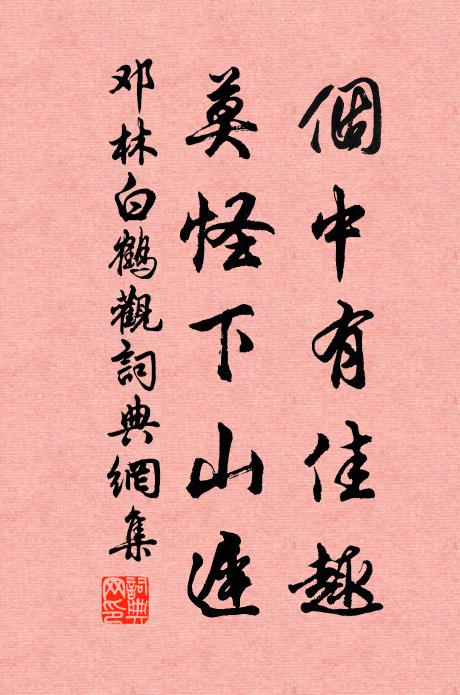 個中有佳趣
莫怪下山遲
邓林白鶴觀詞典網集
詞典网印